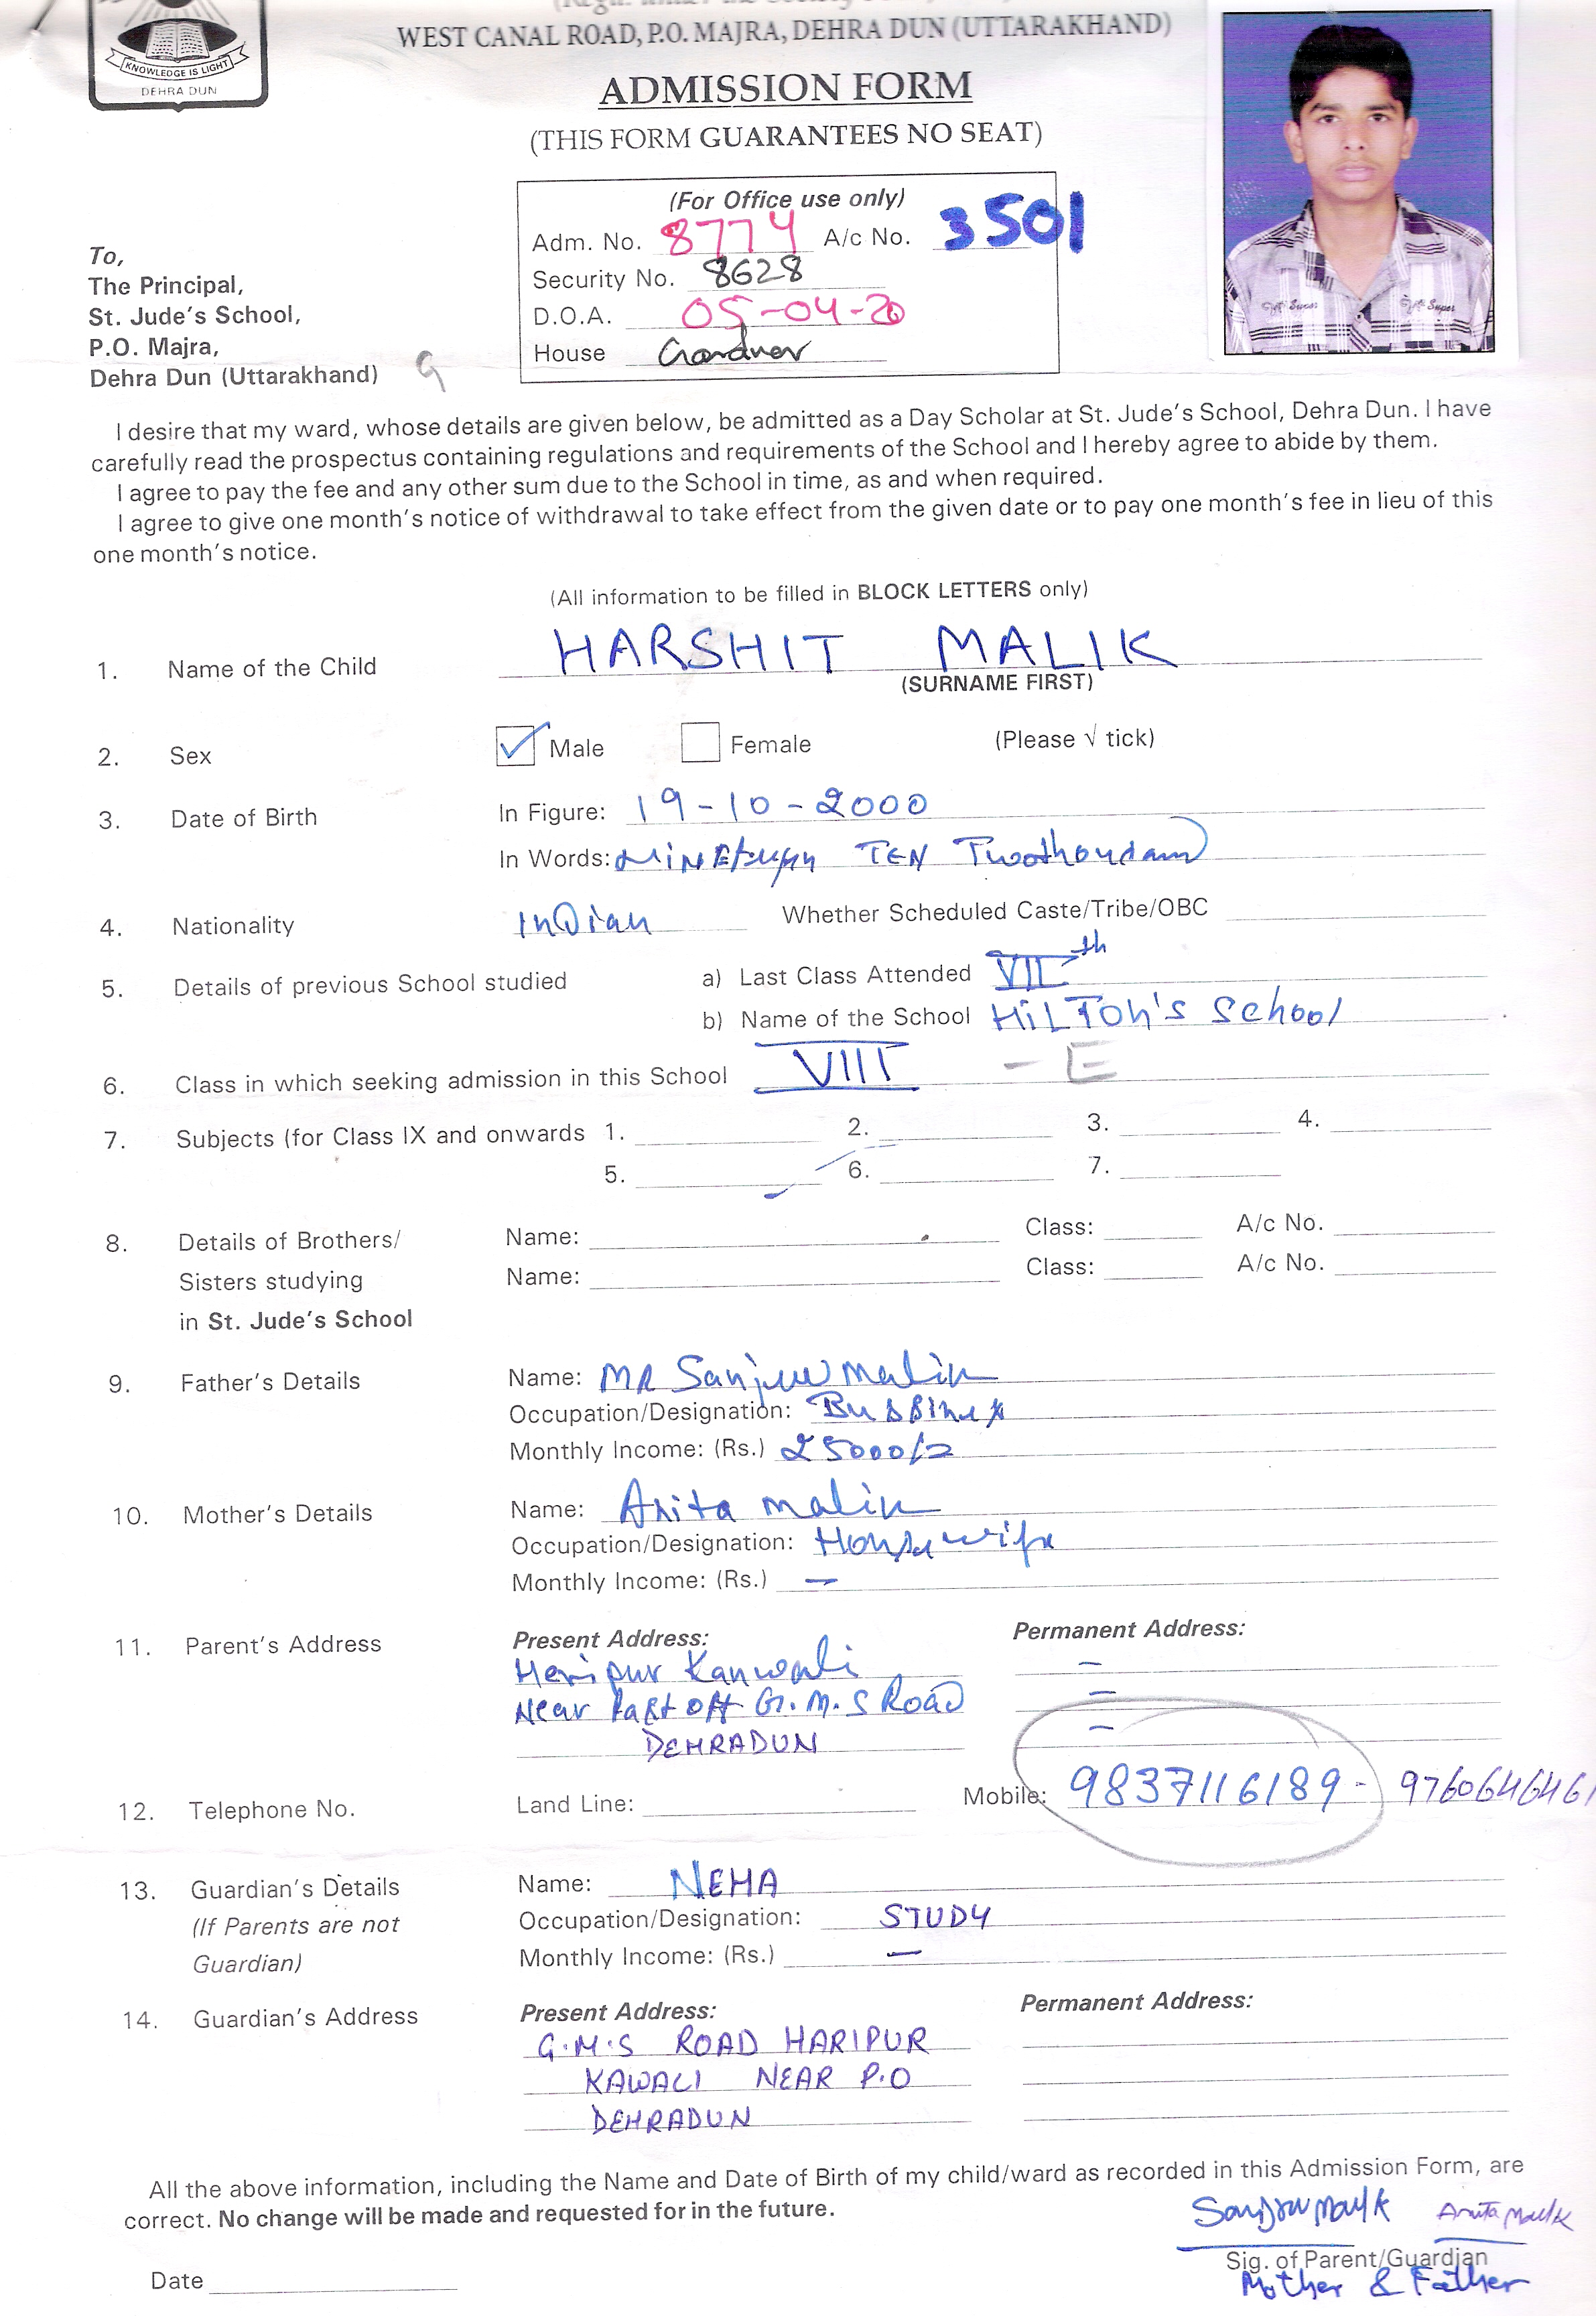 KNOWLEDGE IS LIGHT
DEHRA DUN
WEST CANAL ROAD, P.O. MAJRA, DEHRA DUN (UTTARAKHAND)
ADMISSION FORM
(THIS FORM GUARANTEES NO SEAT)
(For Office use only)
Adm. No. 8774 A/c No. 3501
Security No. 8628
D.O.A. 05-04-20
House Gardner
To,
The Principal,
St. Jude's School,
P.O. Majra,
Dehra Dun (Uttarakhand) 9
I desire that my ward, whose details are given below, be admitted as a Day Scholar at St. Jude's School, Dehra Dun. I have
carefully read the prospectus containing regulations and requirements of the School and I hereby agree to abide by them.
I agree to pay the fee and any other sum due to the School in time, as and when required.
I agree to give one month's notice of withdrawal to take effect from the given date or to pay one month's fee in lieu of this
one month's notice.
(All information to be filled in BLOCK LETTERS only)
1. Name of the Child HARSHIT MALIK
(SURNAME FIRST)
2. Sex Male Female (Please √ tick)
3. Date of Birth In Figure: 19-10-2000
In Words: TEN Twothousand
4. Nationality InDian Whether Scheduled Caste/Tribe/OBC
5. Details of previous School studied a) Last Class Attended VII th
b) Name of the School HiLTon's School
6. Class in which seeking admission in this School VIII - E
7. Subjects (for Class IX and onwards 1. 2. 3. 4.
5. 6. 7.
8. Details of Brothers/ Name: Class: A/c No.
Sisters studying Name: Class: A/c No.
in St. Jude's School
9. Father's Details Name: MR Malik
Occupation/Designation:
Monthly Income: (Rs.) 25000/=
10. Mother's Details Name: Anita malik
Occupation/Designation: Housewife
Monthly Income: (Rs.) —
11. Parent's Address Present Address: Permanent Address:
Haripur Kanwali –
Near off G.M.S Road =
DEHRADUN –
12. Telephone No. Land Line: Mobile: 9837116189 - 9760646461
13. Guardian's Details Name: NEHA
(If Parents are not Occupation/Designation: STUDY
Guardian) Monthly Income: (Rs.) —
14. Guardian's Address Present Address: Permanent Address:
G.M.S ROAD HARIPUR
KAWALI NEAR P.O
DEHRADUN
All the above information, including the Name and Date of Birth of my child/ward as recorded in this Admission Form, are
correct. No change will be made and requested for in the future.
Malik Anita Malik
Date Sig. of Parent/Guardian
Mother & Father